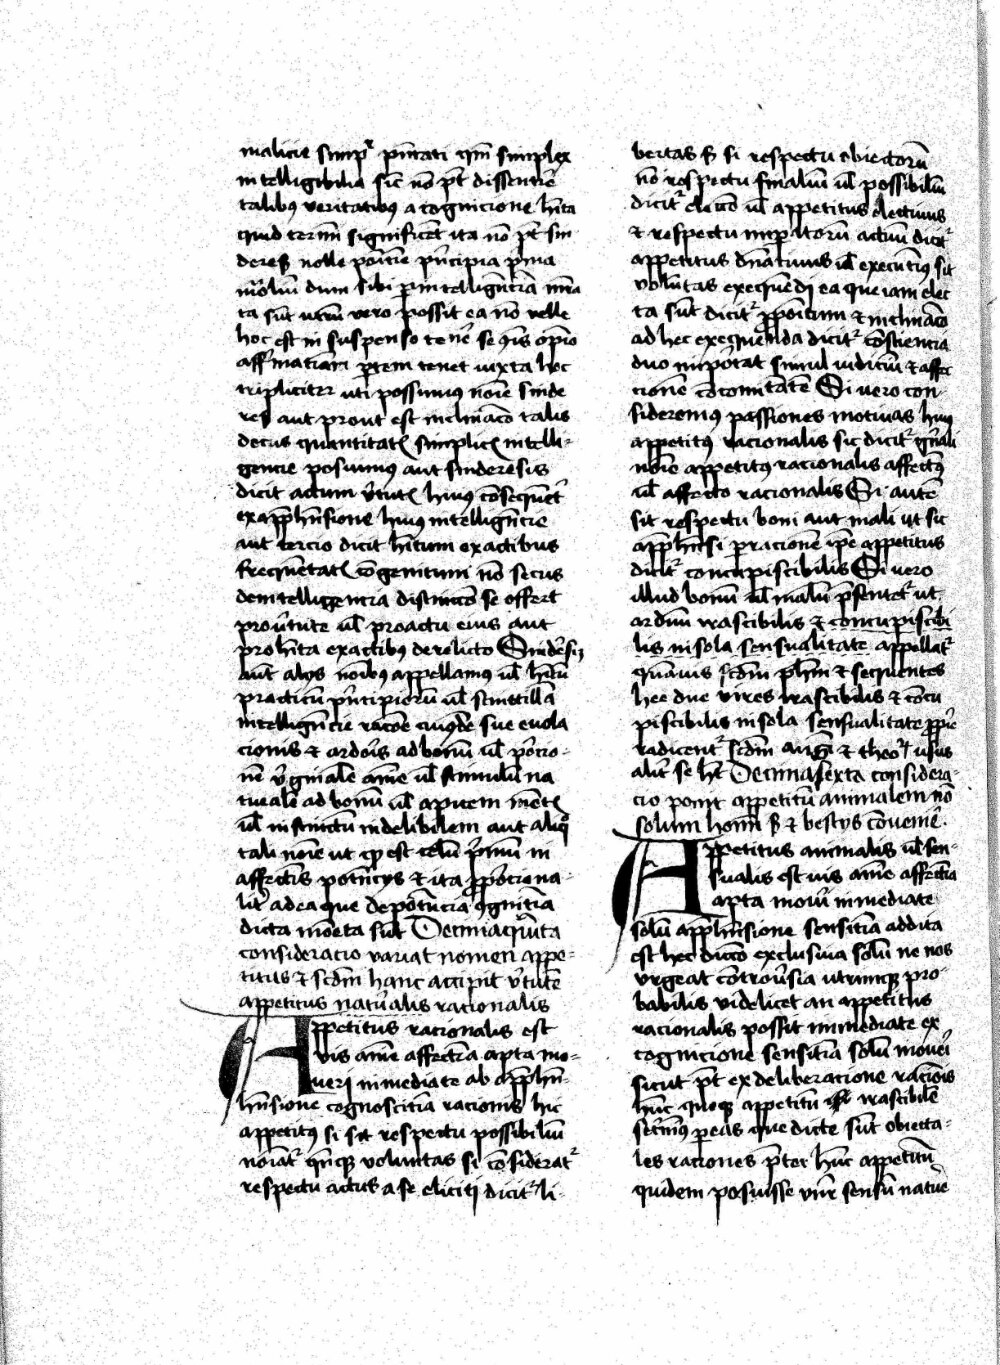 malicie simpr pntati qm simplex
intelligibilia sic nō pt dissentire
talibus veritatibus a cognicione hita
quid termini significent ita nō pt sin
deres nolle positie pncipia pma
dum sibi p intelligēciam
ta sūt utrum vero possit ea nō velle
hoc est in suspenso tenere se
affirmatiuam ptem tenet iuxta hoc
tripliciter uti possumus noīe sinde
resi aut prout est inclinacō talis
decus simplicis intelli-
gencie posuimus aut sinderesis
dicit actum huius consequēter
ex apphensione huius intelligēcie
aut tercio dicit hitum ex actibus
cōgenitum nō secus
distinctō se offert
ut pro actu eius aut
pro hita ex actibus derelicto Sinderesim
aūt alys noībus appellamus ul hitū
practicū pncipiorū ul scintillā
intelligēcie racōe cuiusdē sue euola
cionis & ardoris ad bonū ul porcio-
nē virginalē anime ul stimulū na
turalē ad bonū ul apicem mētis
ul instinctū indelibilem aut aliquo
tali noīe ut est celū primū in
affectis potencys & ita pporciona-
liter ad ea que de potencia cognitiua
dicta sūt Decimaquīta
consideratio variat nomen appe-
titus & scdm hanc accipit vtutē
appetitus naturalis racionalis
Appetitus racionalis est
vis anime affectiua apta mo-
ueri inmediate ab apphen-
hensione cognoscitiua racionis hic
appetitus si sit respectu possibiliū
noīatr voluntas si cōsideratr
respectu actus a se eliciti dicitr li-
bertas S si respectu obiectorū
nō respectu finaliū ul possibiliū
dicitr electō ul appetitus electiuus
& respectu actuū dicitr
appetitus dnatiuus ul executiuus sit
volūtas exequēdi ea que iam elec
ta sūt dicitr ppositum & inclinacō
ad hec exequenda dicitr cōsciencia
duo importat simul iudiciū & affec
cionē cōcomitātē Si vero con-
sideremus passiones motiuas huius
appetitus racionalis sic dicitr gnali
noīe appetitus racionalis affectus
ul affectio racionalis Si autē
sit respectu boni aut mali ut sic
apphensi p racionē ipse appetitus
dicitr concupiscibilis Si vero
illud bonū ul malū psentetr ut
arduū irascibilis & concupiscibi
lis in sola sensualitate appellatr
quāuis scdm phm & sequentes
hee due vires irascibilis & cōcu
piscibilis in sola sensualitate pprie
radicentr scdm Augi & theo usus
alitr se ht Decimasexta considera-
cio ponit appetitū animalem nō
solum homini S & bestys cōuenire.
Appetitus animalis ul sen-
sualis est uis anime affectiua
apta moueri inmediate
solū apphensione sensitiua addita
est hec dictō exclusiua solū ne nos
urgeat cōtrouersia utrimque pro-
babilis videlicet an appetitus
racionalis possit immediate ex
cognicione sensitiua solū moueri
sicut pt ex deliberacione racionis
hūc quoque appetitū irascibilē
p eas que dicte sūt obiecta-
les raciones pter hūc appetitū
quidem posuisse sensū nature